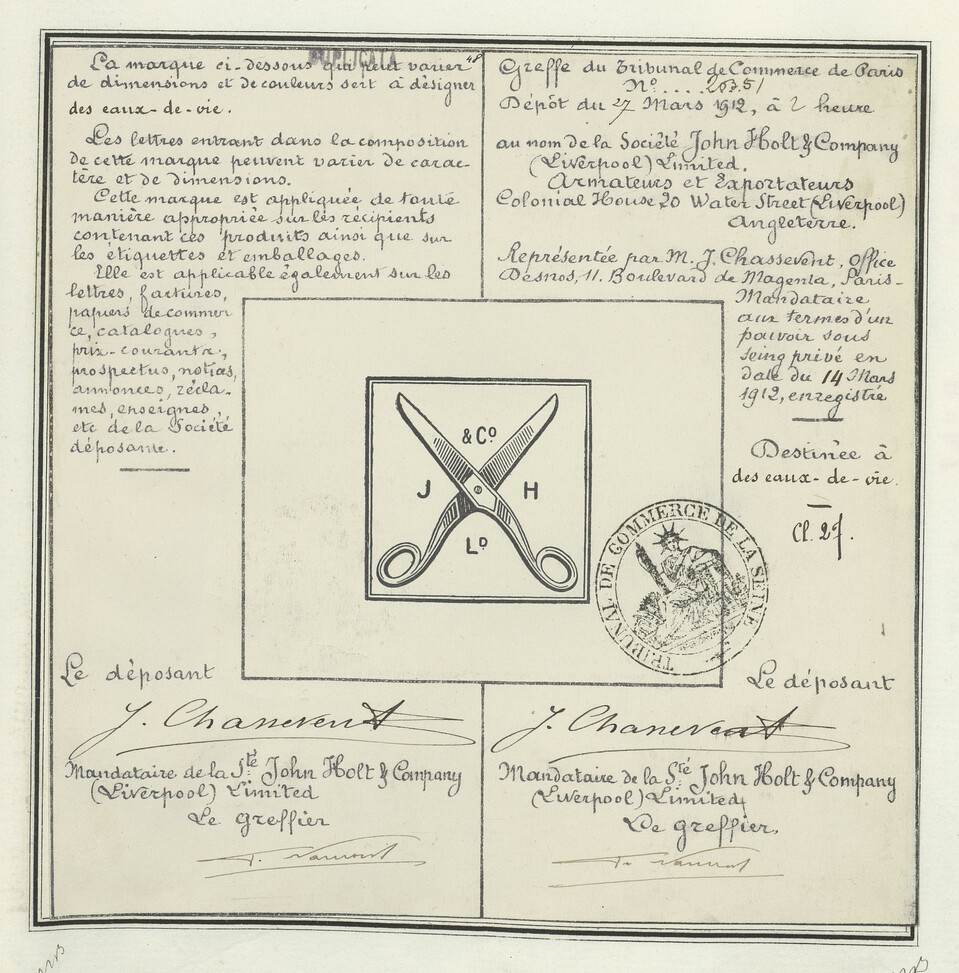 DUPLICATA
48
La marque ci-dessous qui peut varier
de dimensions et de couleurs sert à désigner
des eaux-de-vie.
Les lettres entrant dans la composition
de cette marque peuvent varier de carac-
tère et de dimensions.
Cette marque est appliquée de toute
manière appropriée sur les récipients
contenant ces produits ainsi que sur
les étiquettes et emballages.
Elle est applicable également sur les
lettres, factures,
papiers de commer
ce, catalogues,
prix-courants,
prospectus, notices,
annonces, récla-
mes, enseignes,
etc de la Société
déposante.
Greffe du Tribunal de Commerce de Paris
No....
Dépôt du 27 Mars 1912, à 2 heure
au nom de la Société John Holt & Company
(Liverpool) Limited.
Armateurs et Exportateurs
Colonial House 20 Water Street (Liverpool)
Angleterre.
Représentée par M. J. Chassevent, Office
Desnos, 11. Boulevard de Magenta, Paris-
Mandataire
aux termes d'un
pouvoir sous
seing privé en
date du 14 Mars
1912, enregistré
Destinée à
des eaux-de-vie.
Cl. 27.
& Co
J H
LD
TRIBUNAL DE COMMERCE DE LA SEINE
Le déposant
J. Chassevent
Mandataire de la Sté John Holt & Company
(Liverpool) Limited
Le greffier
Le déposant
J. Chassevent
Mandataire de la Sté John Holt & Company
(Liverpool) Limited,
Le greffier,